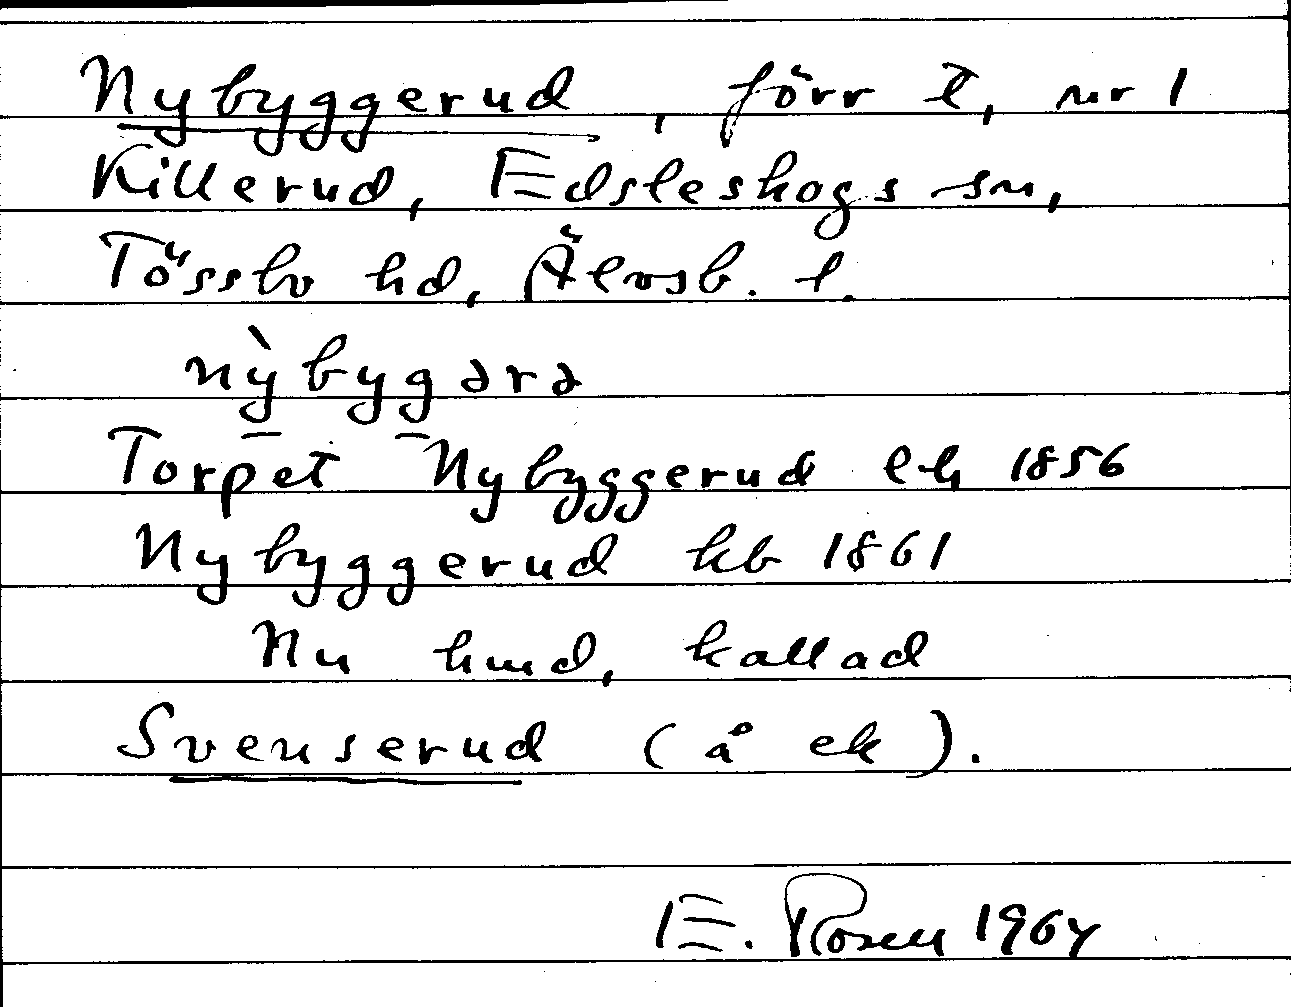 Nybyggerud, förr t, nr 1
Killerud, Edsleskogs sn,
Tössbo hd, Älvsb. l.
nỳbygərə
Torpet Nybyggerud lh 1856
Nybyggerud kb 1861
Nu hmd, kallad
Svenserud (å ek).
E. Rosen 1964